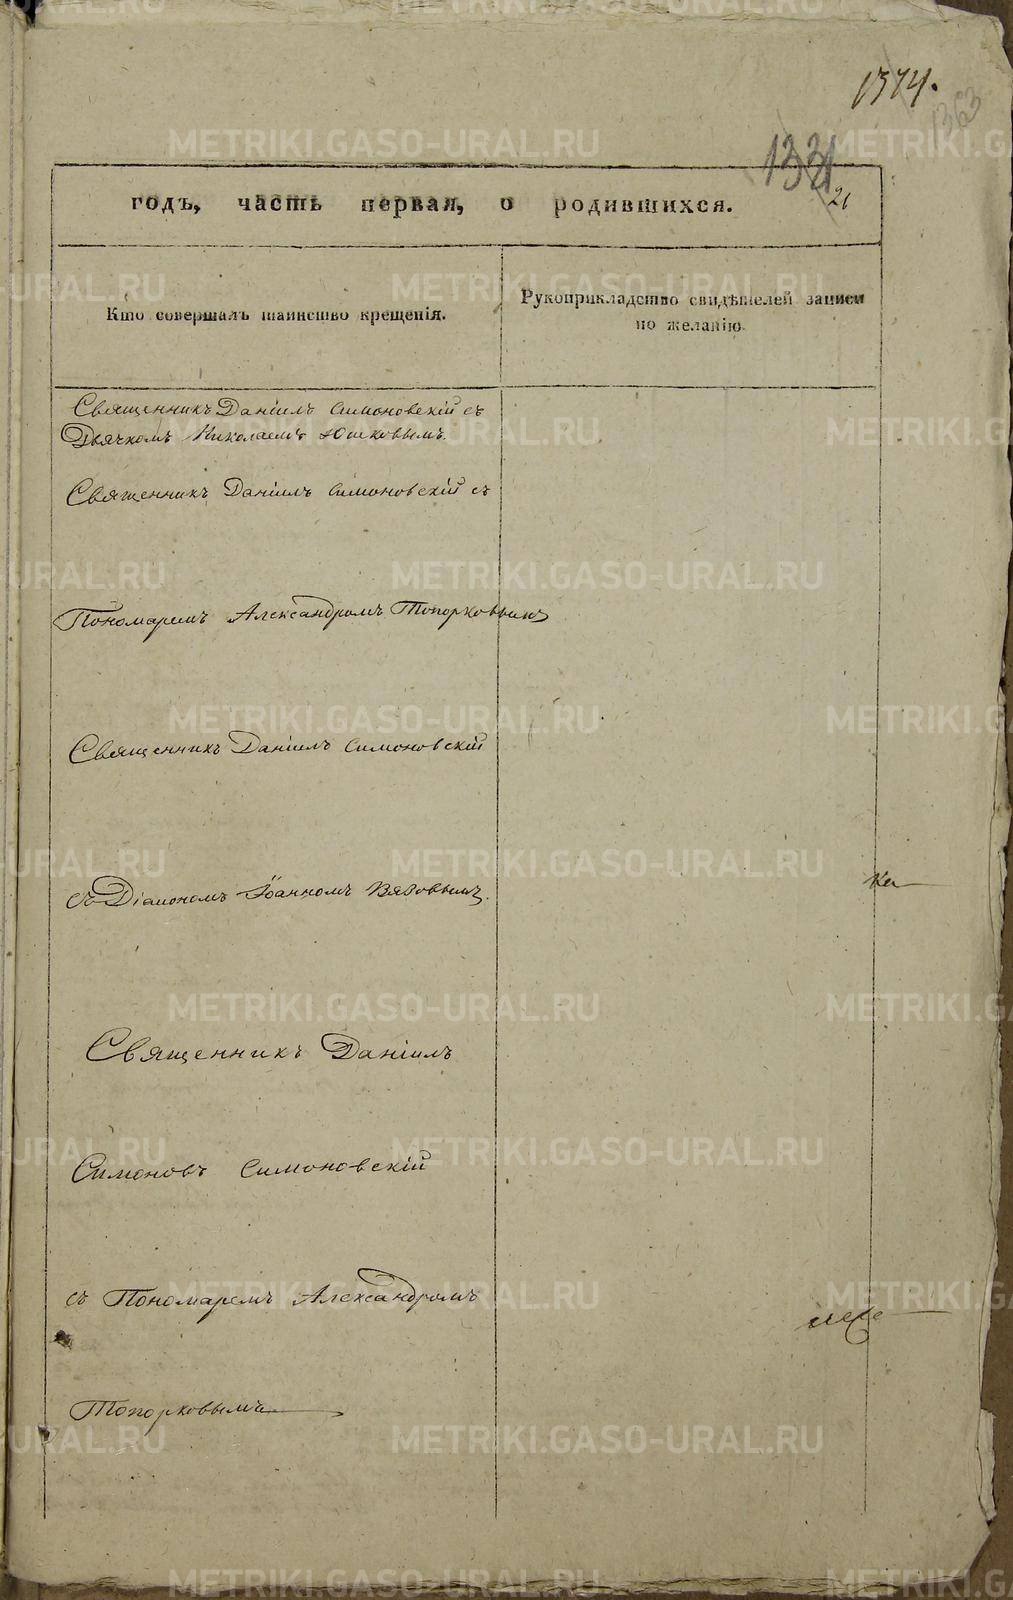 1374.
1363
1331
21
годъ, часть первая, о родившихся.
Кто совершалъ таинство крещенія.
Рукоприкладство свидѣтелей записи
по желанію.
Священникъ Даніилъ Симоновскій съ
Дьячкомъ Николаемъ Юшковымъ.
Священникъ Даніилъ Симоновскій съ
Пономаремъ Александромъ Топорковымъ
Священникъ Даніилъ Симоновскій
съ Діакономъ Іоанномъ Вядовымъ.
Священникъ Даніилъ
Симоновъ Симоновскій
съ Пономаремъ Александромъ
Топорковымъ
METRIKI.GASO-URAL.RU